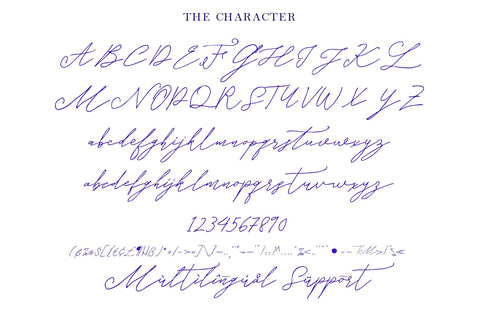 THE CHARACTER
A B C D E F G H I J K L
M N O P Q R S T U V W X Y Z
abcdefghijklmnopqrstuvwxyz
abcdefghijklmnopqrstuvwxyz
1234567890
Multilingual Support